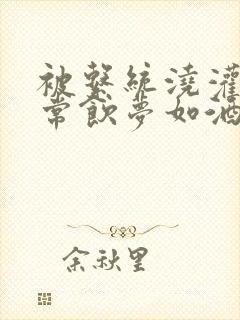 被繫統澆灌
常飲夢如酒
余秋里